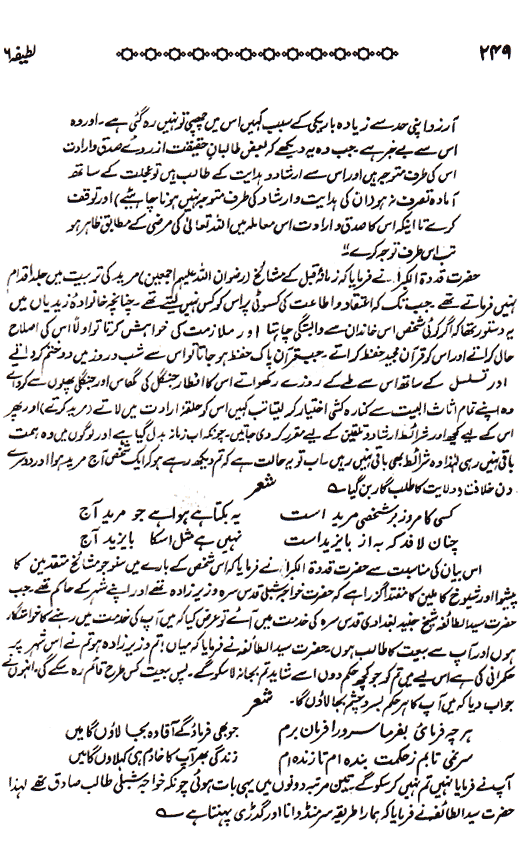 ۲۴۹ لطیفہ ۶
آرزو اپنی حد سے زیادہ باریکی کے سبب کہیں اس میں چھپی تو نہیں رہ گئی ہے۔ اور وہ
اس سے بے خبر ہے۔ جب وہ یہ دیکھے کہ بعض طالبانِ حقیقت از روئے صدق و ارادت
اس کی طرف متوجہ ہیں اور اس سے ارشاد و ہدایت کے طالب ہیں تو عجلت کے ساتھ
آمادہ تصرف نہ ہو (ان کی ہدایت و ارشاد کی طرف متوجہ نہیں ہونا چاہئیے) اور توقف
کرے تا اینکہ اس کا صدق و ارادت اس معاملہ میں اللہ تعالیٰ کی مرضی کے مطابق ظاہر ہو
تب اس طرف توجہ کرے"
حضرت قدوۃ الکبرا نے فرمایا کہ زمانۂ قبل کے مشائخ (رضوان اللہ علیہم اجمعین) مرید کی تربیت میں جلد اقدام
نہیں فرماتے تھے۔ جب تک کہ اعتقاد و اطاعت کی کسوٹی پر اس کو کس نہیں لیتے تھے۔ چنانچہ خانوادۂ زیدیاں میں
یہ دستور تھا کہ اگر کوئی شخص اس خاندان سے وابستگی چاہتا اور ملازمت کی خواہش کرتا تو اولاً اس کی اصلاح
حال کراتے اور اس کو قرآن مجید حفظ کراتے۔ جب قرآن پاک حفظ ہو جاتا تو اس سے شب و روز میں دو ختم کرواتے
اور تسلسل کے ساتھ اس سے طے کے روزے رکھواتے اس کا افطار جنگل کی گھاس اور جنگلی پھلوں سے کرواتے
وہ اپنے تمام اثاث البیت سے کنارہ کشی اختیار کر لیتا تب کہیں اس کو حلقۂ ارادت میں لاتے (مرید کرتے) اور پھر
اس کے لیے کچھ اور شرائط ارشاد و تلقین کے لیے مقرر کر دی جاتیں۔ چونکہ اب زمانہ بدل گیا ہے اور لوگوں میں وہ ہمت
باقی نہیں رہی لہٰذا وہ شرائط بھی باقی نہیں رہیں۔ اب تو یہ حالت ہے کہ تم دیکھ رہے ہو کہ ایک شخص آج مرید ہوا اور دوسرے
دن خلافت و ولایت کا طلب گار بن گیا
شعر
کسی کامروز بر شخصی مرید است یہ بکتا ہے ہوا ہے جو مرید آج
چنان لافد کہ بہ از بایزید است نہیں ہے مثل اسکا بایزید آج
اس بیان کی مناسبت سے حضرت قدوۃ الکبرا نے فرمایا کہ اس شخص کے بارے میں سنو جو مشائخ متقدمین کا
پیشوا اور شیوخ کاملین کا مقتدا گزرا ہے کہ حضرت خواجہ شبلی قدس سرہ وزیر زادہ تھے اور اپنے شہر کے حاکم تھے۔ جب
حضرت سید الطائفہ شیخ جنید بغدادی قدس سرہ کی خدمت میں آئے تو عرض کیا کہ میں آپ کی خدمت میں رہنے کا خواستگار
ہوں اور آپ سے بیعت کا طالب ہوں۔ حضرت سید الطائفہ نے فرمایا کہ میاں! تم وزیر زادہ ہو تم نے اس شہر پر
حکمرانی کی ہے اس لیے میں تم کو جو کچھ حکم دوں اسے شاید تم بجا نہ لا سکو گے۔ پس بیعت کس طرح قائم رہ سکے گی۔ انہوں نے
جواب دیا کہ میں آپ کا ہر حکم بسر و چشم بجا لاؤں گا۔
شعر
ہر چہ فرمائی بفرما سرور افرمان برم جو بھی فرماؤ گے آقا وہ بجا لاؤں گا میں
سر نمی تابم ز حکمت بندہ ام تا زندہ ام زندگی بھر آپ کا خادم ہی کہلاؤں گا میں
آپ نے فرمایا نہیں تم نہیں کر سکو گے۔ تین مرتبہ دونوں میں یہی بات ہوئی چونکہ خواجہ شبلی طالب صادق تھے لہٰذا
حضرت سید الطائفہ نے فرمایا کہ ہمارا طریقہ سر منڈوانا اور گدڑی پہننا ہے